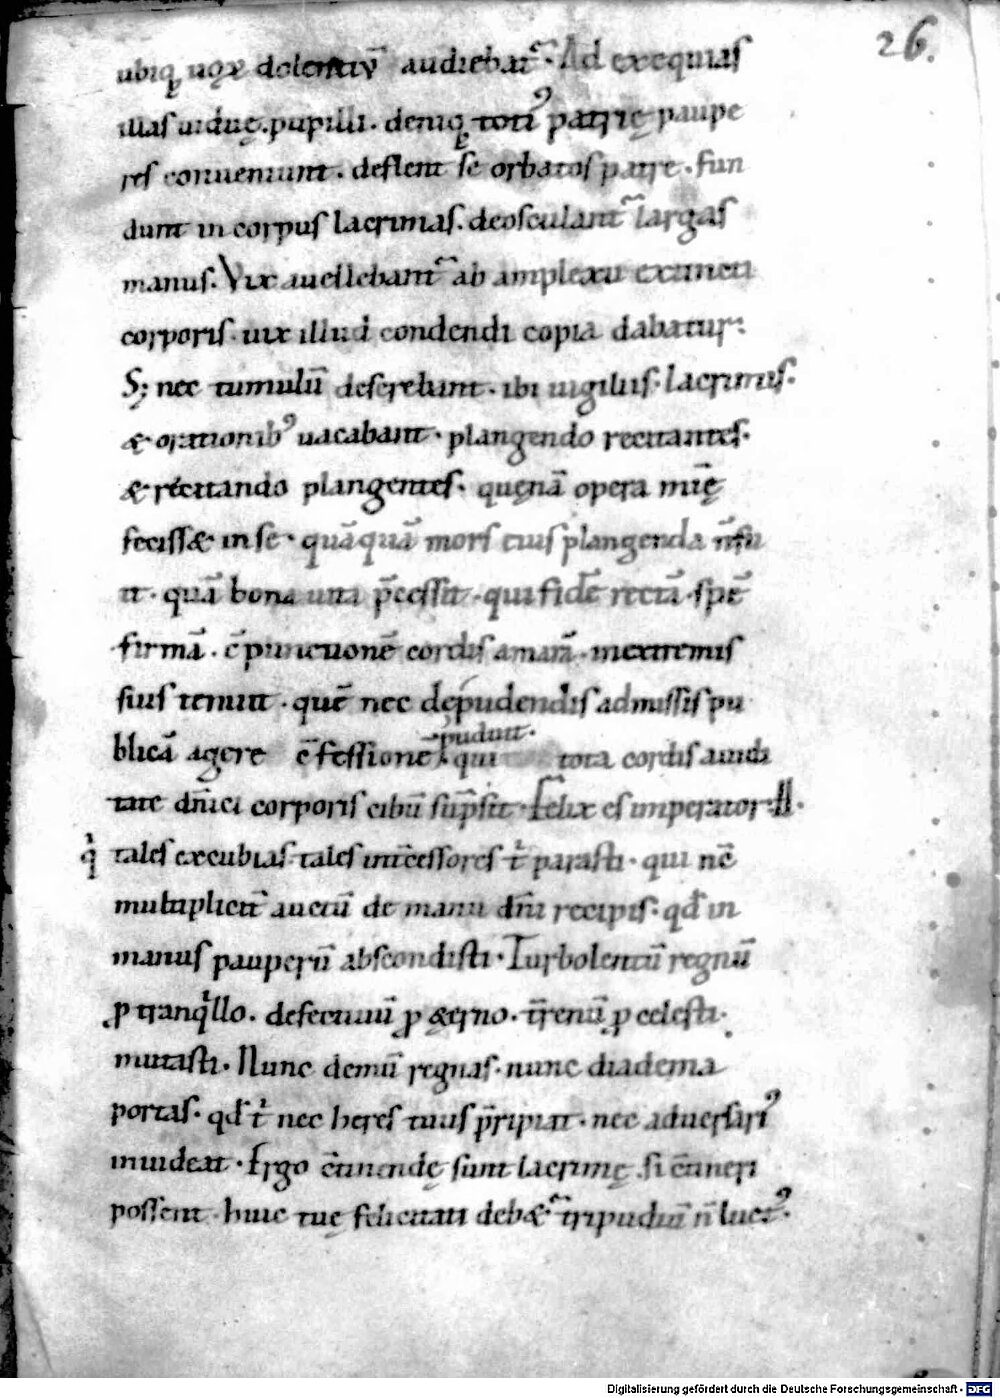 26.
ubiq; uox dolentiū audiebat᷑. Ad exequias
illas uiduę. pupilli. deniq; toti᷒ patrię paupe
res conueniunt. deflent se orbatos patre. fun
dunt in corpus lacrimas. deosculant᷑ largas
manus. Vix auellebant᷑ ab amplexu exuncti
corporis. uix illud condendi copia dabatur.
S; nec tumulū deserebant. ibi uigiliis. lacrimis.
& orationib᷒ uacabant. plangendo recitantes.
& recitando plangentes. quęnā opera mi̅ę
feciss& in se. quāquā mors eius plangenda n̅ fu
it. quā bona uita p̅cessit. qui fidē rectā. spē
firmā. c̅punctionē cordis amarā. in extremis
suis tenuit. quē nec depudendis admissis pu
blicā agere c̅fessionē puduit. qui tota cordis auidi
tate dn̅ici corporis cibū sūpsit. Felix es imperator H.
qͥ tales excubias. tales int̅cessores tͥ parasti. qui nc̅
multiplicit̅ auctū de manu dn̅i recipis. qd̅ in
manus pauperū abscondisti. Turbolentū regnū
ꝓ tranqͥllo. defectiuū ꝓ &erno. t̅renū ꝓ celesti.
mutasti. Nunc demū regnas. nunc diadema
portas. qd̅ tͥ nec heres tuus p̅ripiat. nec aduersari᷒
inuideat. Ergo c̅tinendę sunt lacrimę. si c̅tineri
possent. huic tuę felicitati deb&᷑ tripudiū n̅ luct᷒.
Digitalisierung gefördert durch die Deutsche Forschungsgemeinschaft - DFG